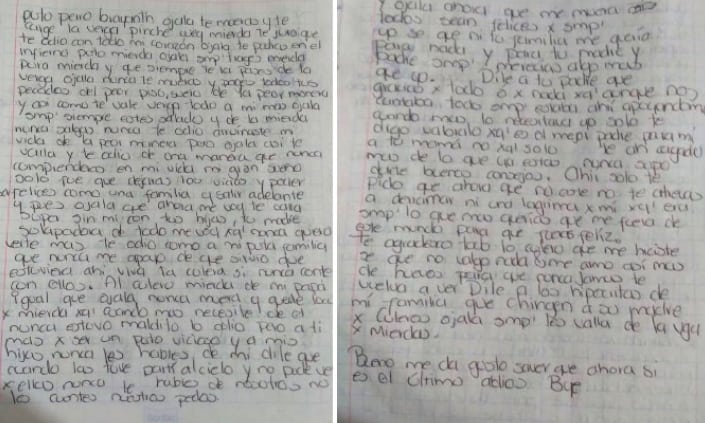 puto perro brayonth ojala te mueras y te
carge la verga pinche wey mierda te juro que
te odio con todo mi corazón ojala te pudras en el
infierno puto mierda ojala smp hagas mierda
pura mierda y que siempre te la pases de la
verga ojala nunca te mueras y pages todos tus
pecados del peor piso, suela de la peor manera
y asi como te vale verga todo a mi mas ojala
smp' siempre estes salado y de la mierda
nunca salgas nunca te odio arruinaste mi
vida de la peor manera pero ojala asi te
valla y te odio de una manera que nunca
comprenderas en mi vida mi gran sueño
solo fue que dejaras los vicios y poder
ser felices como una familia y salir adelante
y pues ojala que ahora me vaya te valla
super sin mi con tus hijos, tu madre
solapadora de todo me voy xq' nunca quero
verte mas te odio como a mi puta familia
que nunca me apoyo de que sirvio que
estuviera ahi viva la culera si nunca conte
con ellos. Al culero mierda de mi papá
igual que ojala nunca muera y quede loco
x mierda xq' cuando mas necesite de el
nunca estuvo maldito lo odio pero a ti
mas x ser un puto vicioso y a mis
hijas nunca les hables de mi dile que
cuando las tuve parti al cielo y no pude ver
x ellas nunca le hables de nosotros no
les cuentes nuestros pedos
y ojala ahora que me muera
todos sean felices x smp'
yo se que ni tu familia me queria
para nada y para tu madre y
padre smp' merecias algo mas
que yo. Dile a tu padre que
gracias x todo o x nada xq' aunque no
contaba todo smp estaba ahi apoyandome
cuando mas lo necesitaba yo solo te
digo valoralo xq' es el mejor padre para mi
a tu mamá no xq' solo te an cagado
mas de lo que ya estas nunca supo
darte buenos consejos. Ahi solo te
pido que ahora que no este no te atrevas
a derramar ni una lagrima x mi xq' era
smp' lo que mas querias que me fuera de
este mundo para que fueras feliz.
te agradezco tab lo culero que me hiciste
que no valgo nada
de hueva perra que nunca jamas te
vuelva a ver Dile a los hipocritas de
mi familia que chinguen a su madre
x culeros ojala smp' les valla de la vga
x mierdas.
Bueno me da gusto saver que ahora si
es el ultimo adios Bye